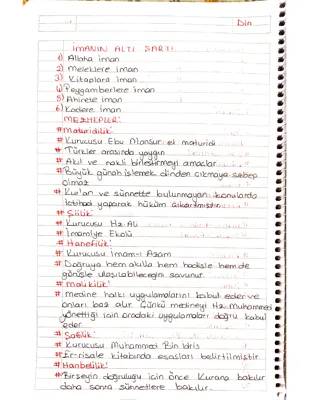 Din
İMANIN ALTI ŞARTI
1) Allaha iman
2) Meleklere iman
3) Kitaplara iman
4) Peygamberlere iman
5) Ahirete iman
6) Kadere iman
MEZHEPLER:
# Maturidilik:
# Kurucusu Ebu Mansur el maturidi
# Türkler arasında yaygın
# Akıl ve nakli birleştirmeyi amaçlar
# Büyük günah işlemek dinden çıkmaya sebep
olmaz
# Kur'an ve sünnette bulunmayan konularda
ictihad yaparak hüküm çıkarmıştır
# Şiilik:
# Kurucusu Hz. Ali
# İmamiye Ekolü
# Hanefilik:
# Kurucusu İmam-ı Azam
# Doğruya hem akılla hem hadisle hem de
görüşle ulaşılabileceğini savunur.
# Malikilik:
# medine halkı uygulamalarını kabul eder ve
onları baz alır. Çünkü medineyi Hz. Muhammed
yönettiği için oradaki uygulamaları doğru kabul
eder.
# Şafilik:
# Kurucusu Muhammed Bin İdris
# Er-risale kitabında esasları belirtilmiştir.
# Hanbelilik:
# Birşeyin doğruluğu için önce Kurana bakılır
daha sonra sünnetlere bakılır.